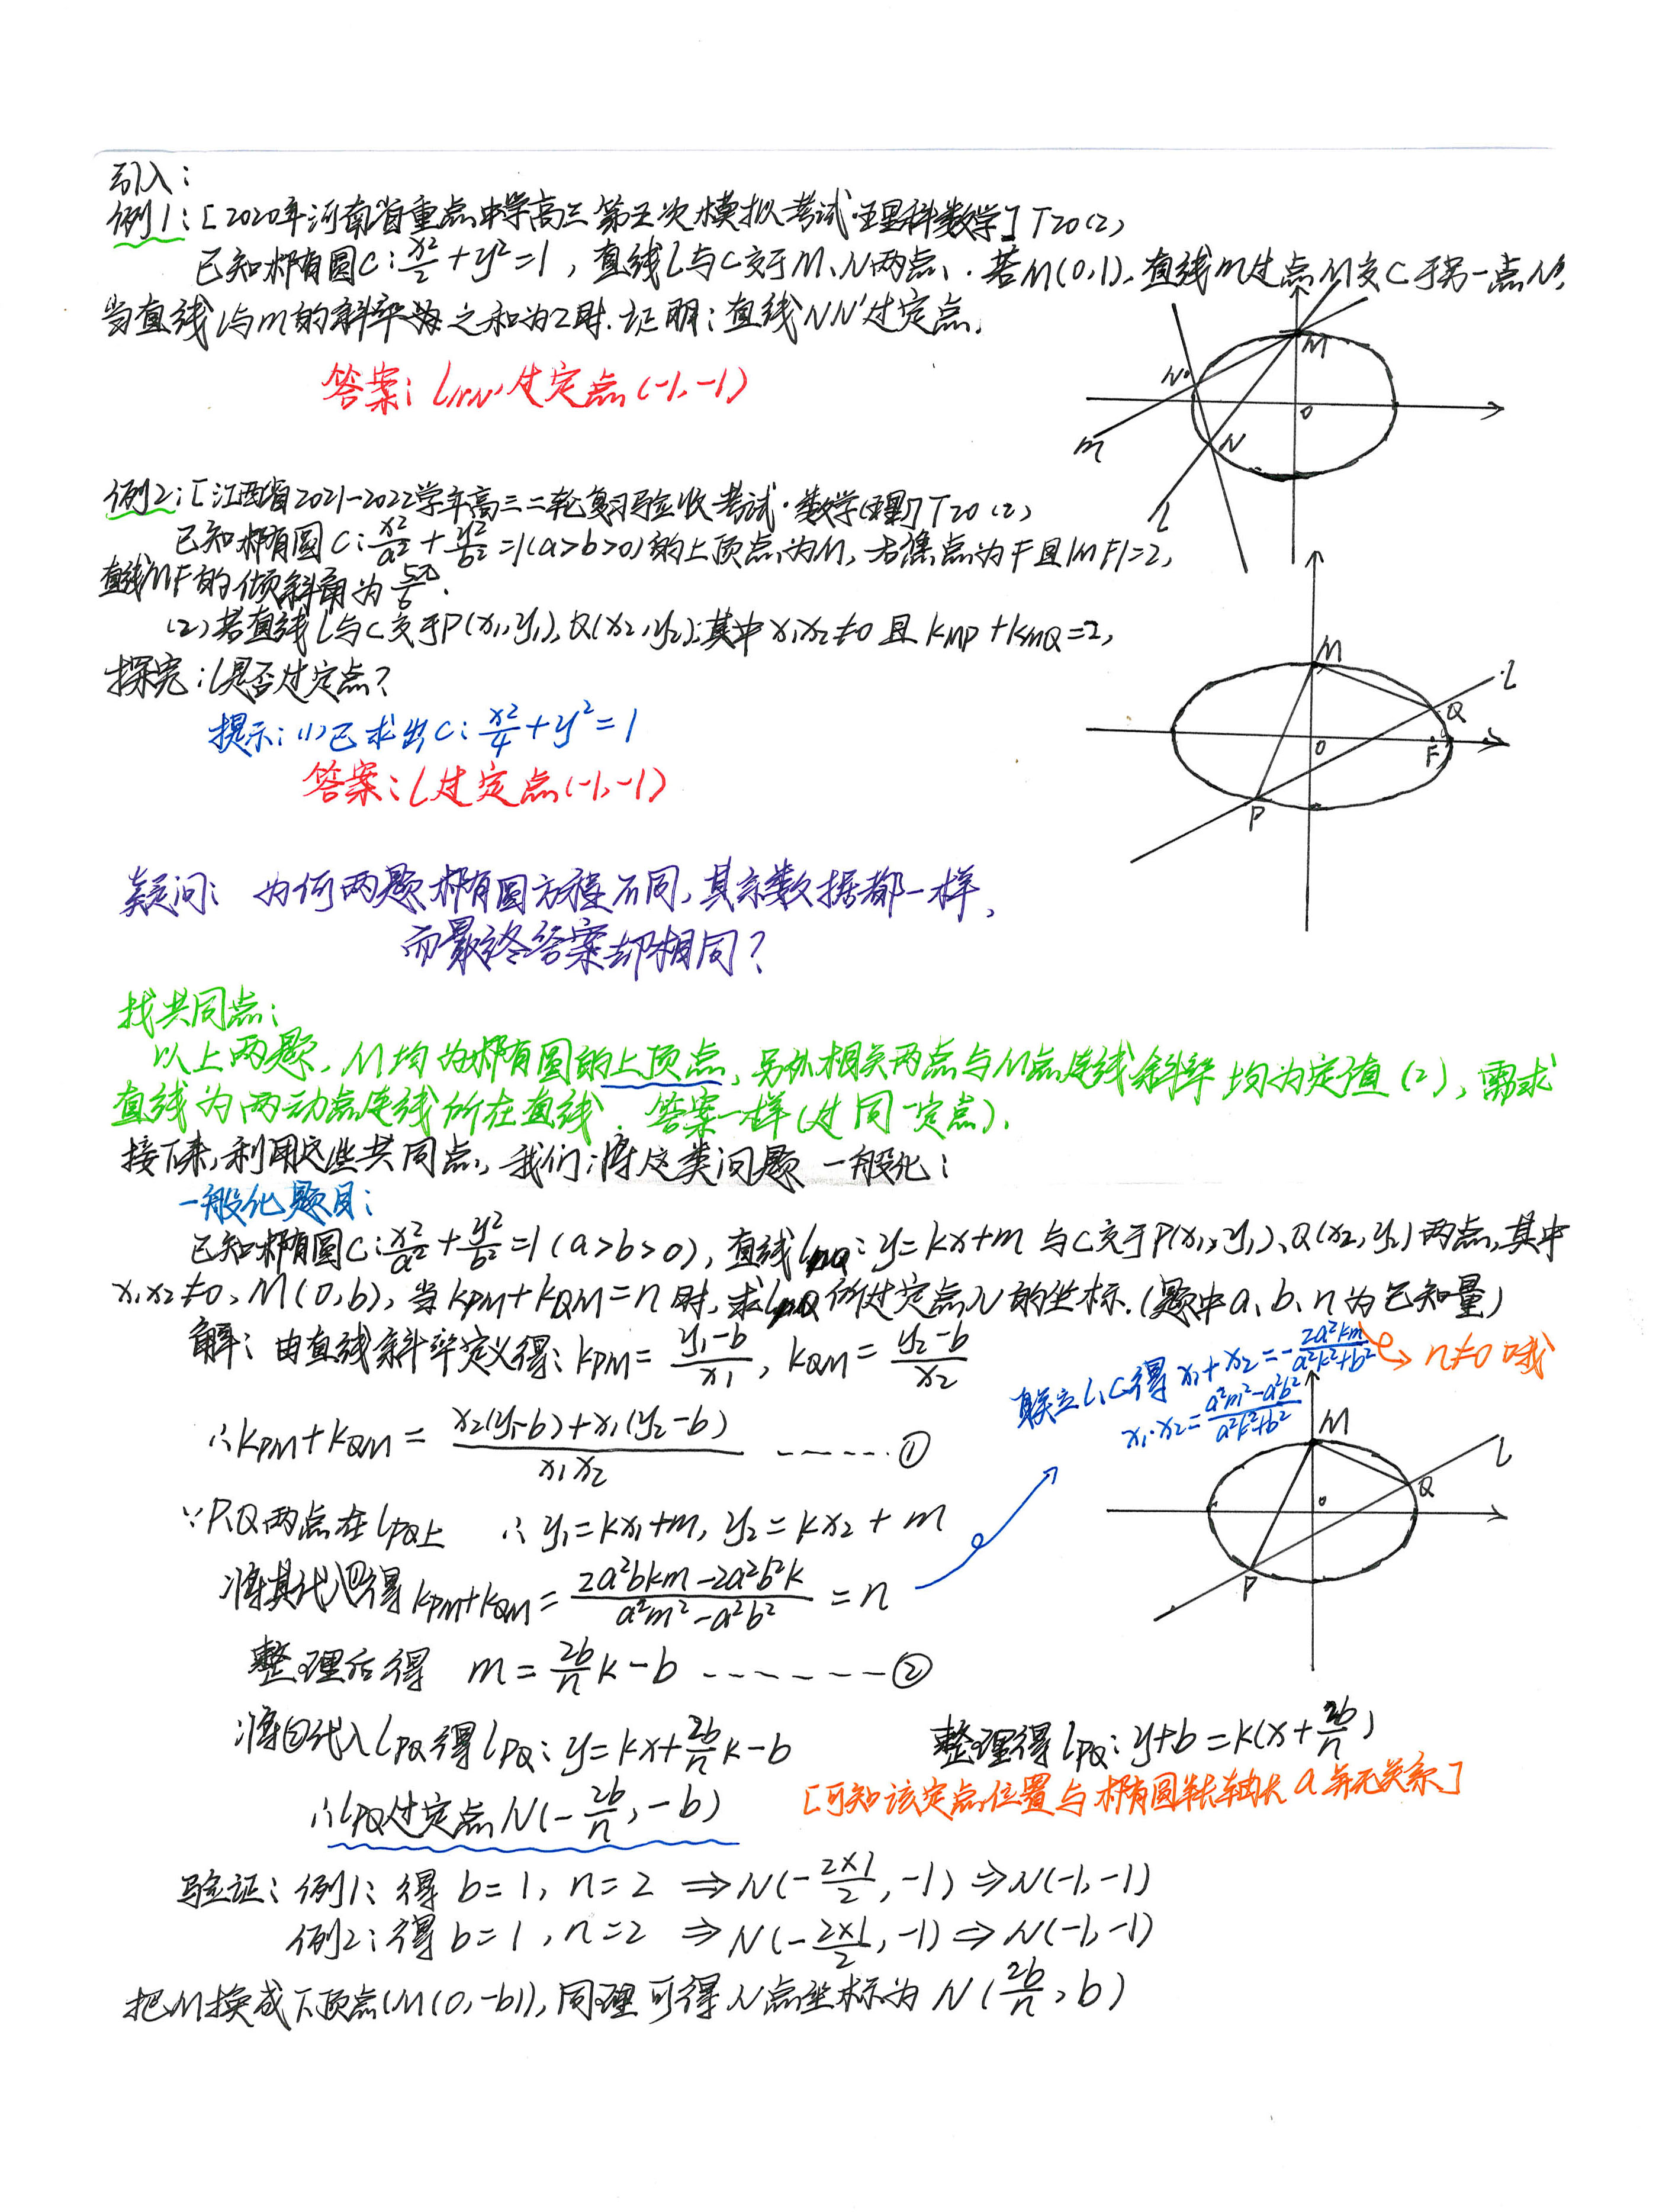 引入:
例1:[2020年河南省重点中学高三第五次模拟考试·理科数学]T20(2)
已知椭圆C:x²/2+y²=1,直线l与C交于M、N两点.若M(0,1),直线m过点M交C于另一点N',
当直线l与m的斜率之和为2时.证明:直线NN'过定点.
答案:l_NN'过定点(-1,-1)
M
N'
O
N
m
l
例2:[江西省2021-2022学年高三二轮复习验收考试·数学(理)]T20(2)
已知椭圆C:x²/a²+y²/b²=1(a>b>0)的上顶点为M,右焦点为F且|MF|=2,
直线MF的倾斜角为5π/6.
(2)若直线l与C交于P(x₁,y₁),Q(x₂,y₂),其中x₁x₂≠0且k_MP+k_MQ=2,
探究:l是否过定点?
提示:(1)已求出C:x²/4+y²=1
答案:l过定点(-1,-1)
M
l
Q
O
F
P
疑问:为何两题椭圆方程不同,其余数据都一样,
而最终答案却相同?
找共同点:
以上两题,M均为椭圆的上顶点,另外相关两点与M点连线斜率均为定值(2),需求
直线为两动点连线所在直线.答案一样(过同一定点).
接下来,利用这些共同点,我们将这类问题一般化:
一般化题目:
已知椭圆C:x²/a²+y²/b²=1(a>b>0),直线l_PQ:y=kx+m与C交于P(x₁,y₁)、Q(x₂,y₂)两点,其中
x₁x₂≠0,M(0,b),当k_PM+k_QM=n时,求l_PQ所过定点N的坐标.(题中a、b、n为已知量)
解:由直线斜率定义得:k_PM=(y₁-b)/x₁,k_QM=(y₂-b)/x₂
联立l,C得x₁+x₂=-2a²km/(a²k²+b²)
n≠0哦
x₁·x₂=(a²m²-a²b²)/(a²k²+b²)
∴k_PM+k_QM=[x₂(y₁-b)+x₁(y₂-b)]/(x₁x₂) ------①
∵P、Q两点在l_PQ上 ∴y₁=kx₁+m,y₂=kx₂+m
将其代入①得k_PM+k_QM=(2a²bkm-2a²b²k)/(a²m²-a²b²)=n
M
l
Q
O
P
整理后得 m=(2b/n)k-b -------②
将②代入l_PQ得l_PQ:y=kx+(2b/n)k-b 整理得l_PQ:y+b=k(x+2b/n)
∴l_PQ过定点N(-2b/n,-b) [可知该定点位置与椭圆半长轴长a并无关系]
验证:例1:得b=1,n=2 ⇒N(-2×1/2,-1)⇒N(-1,-1)
例2:得b=1,n=2 ⇒N(-2×1/2,-1)⇒N(-1,-1)
把M换成下顶点(M(0,-b)),同理可得N点坐标为N(2b/n,b)